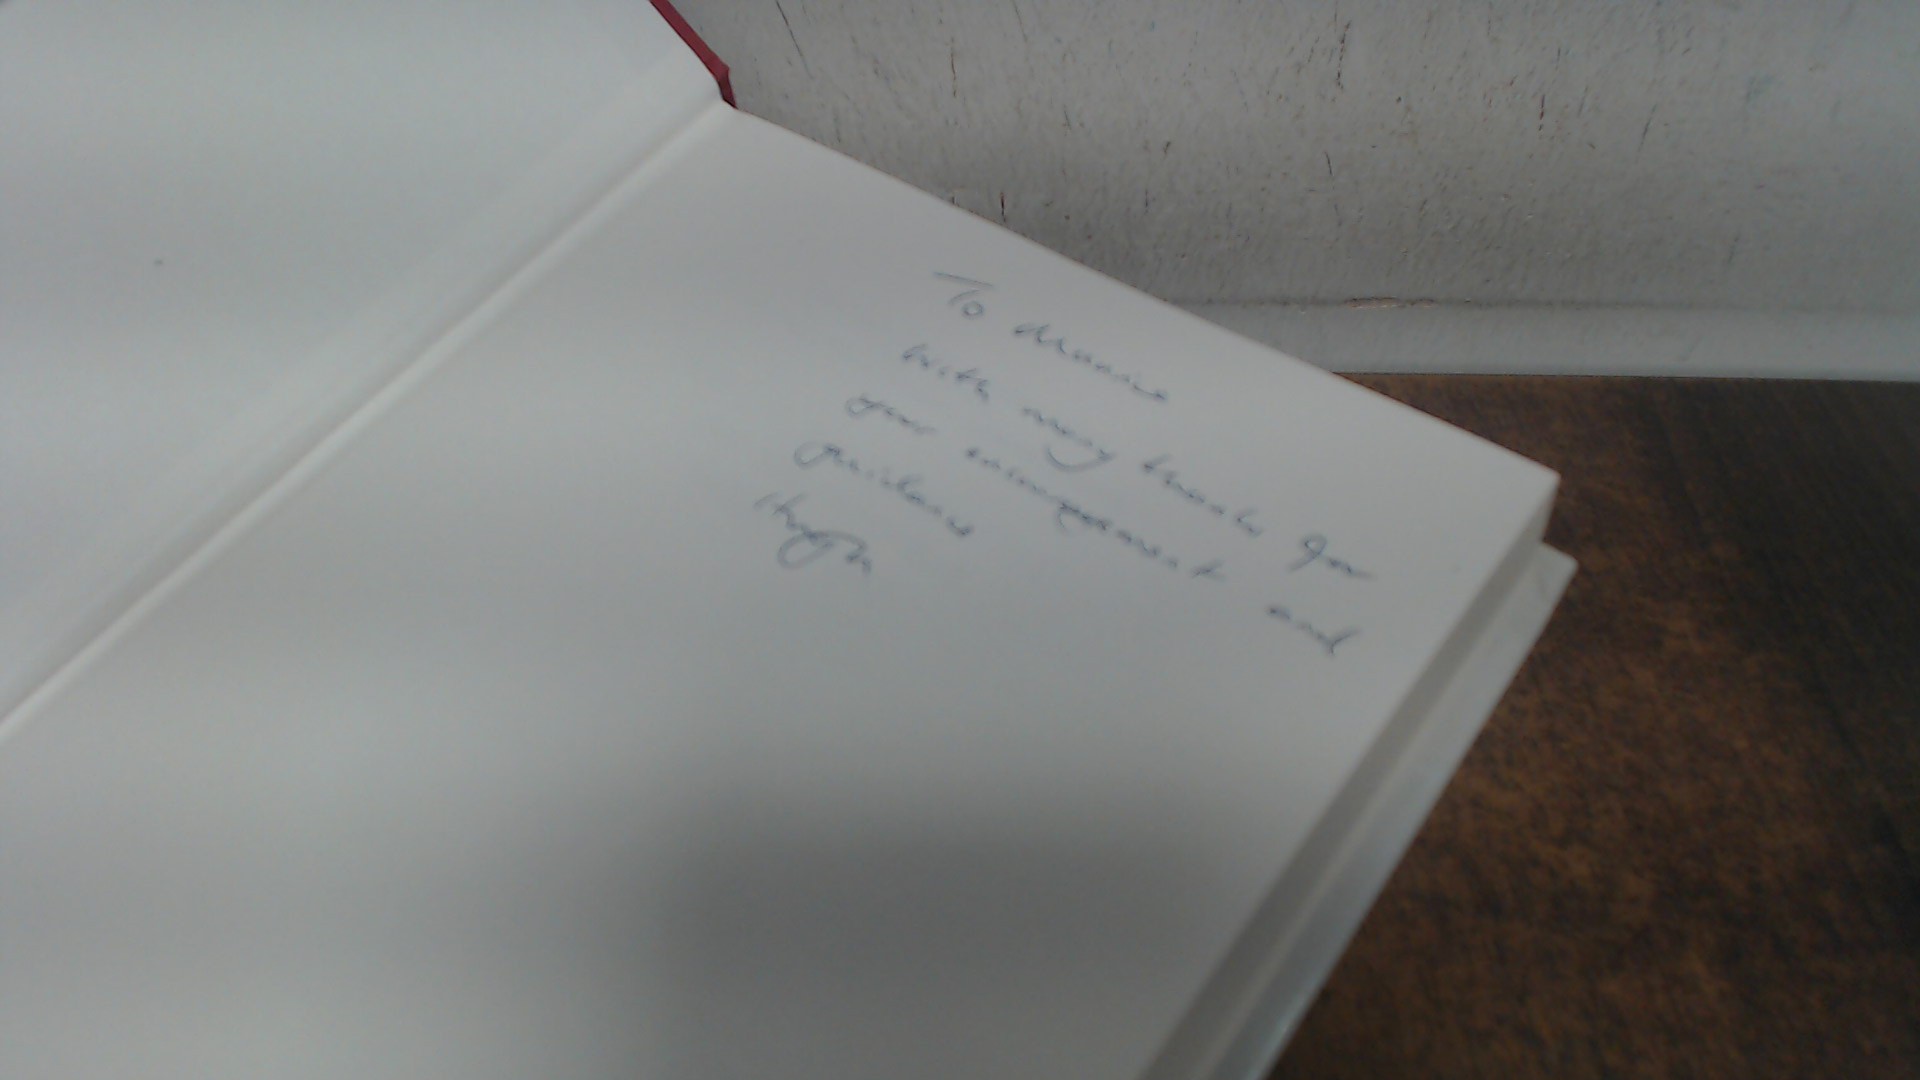 To
with many thanks for
your encouragement and
guidance
Hugh